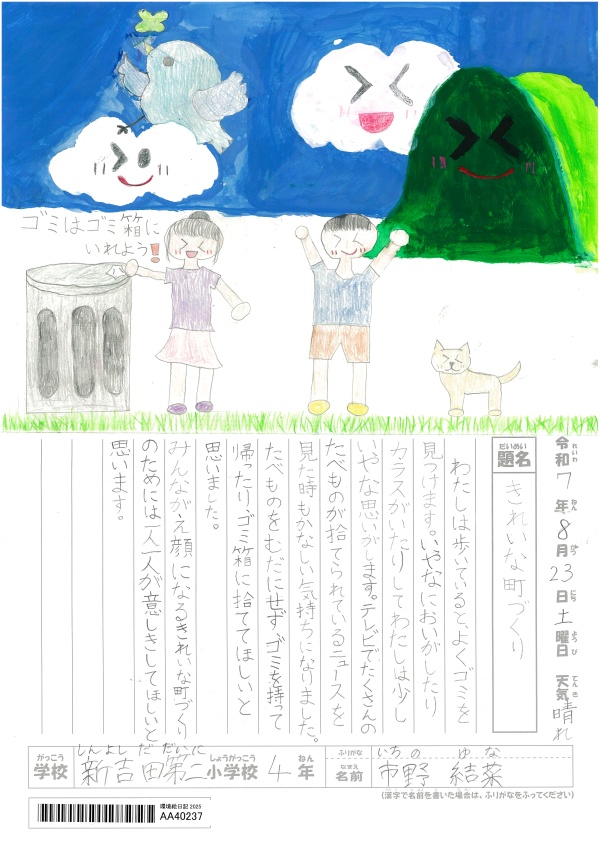 ゴミはゴミ箱に
いれよう!
令和7年8月23日土曜日 天気晴れ
れいわ ねん がつ にち ようび てんき
だいめい
題名 きれいな町づくり
わたしは歩いていると、よくゴミを
見つけます。いやなにおいがしたり
カラスがいたりしてわたしは少し
いやな思いがします。テレビでたくさんの
たべものが捨てられているニュースを
見に時もかなしい気持ちになりました。
たべものをむだにせず、ゴミを持って
帰ったり、ゴミ箱に捨ててほしいと
思いました。
みんながえ顔になるきれいな町づくり
のためには一人一人が意しきしてほしいと
思います。
がっこう しんよしだだいに しょうがっこう ねん
学校 新吉田第二小学校 4年
ふりがな いちの ゆな
なまえ
名前 市野 結菜
(漢字で名前を書いた場合は、ふりがなをふってください)
環境絵日記 2025
AA40237